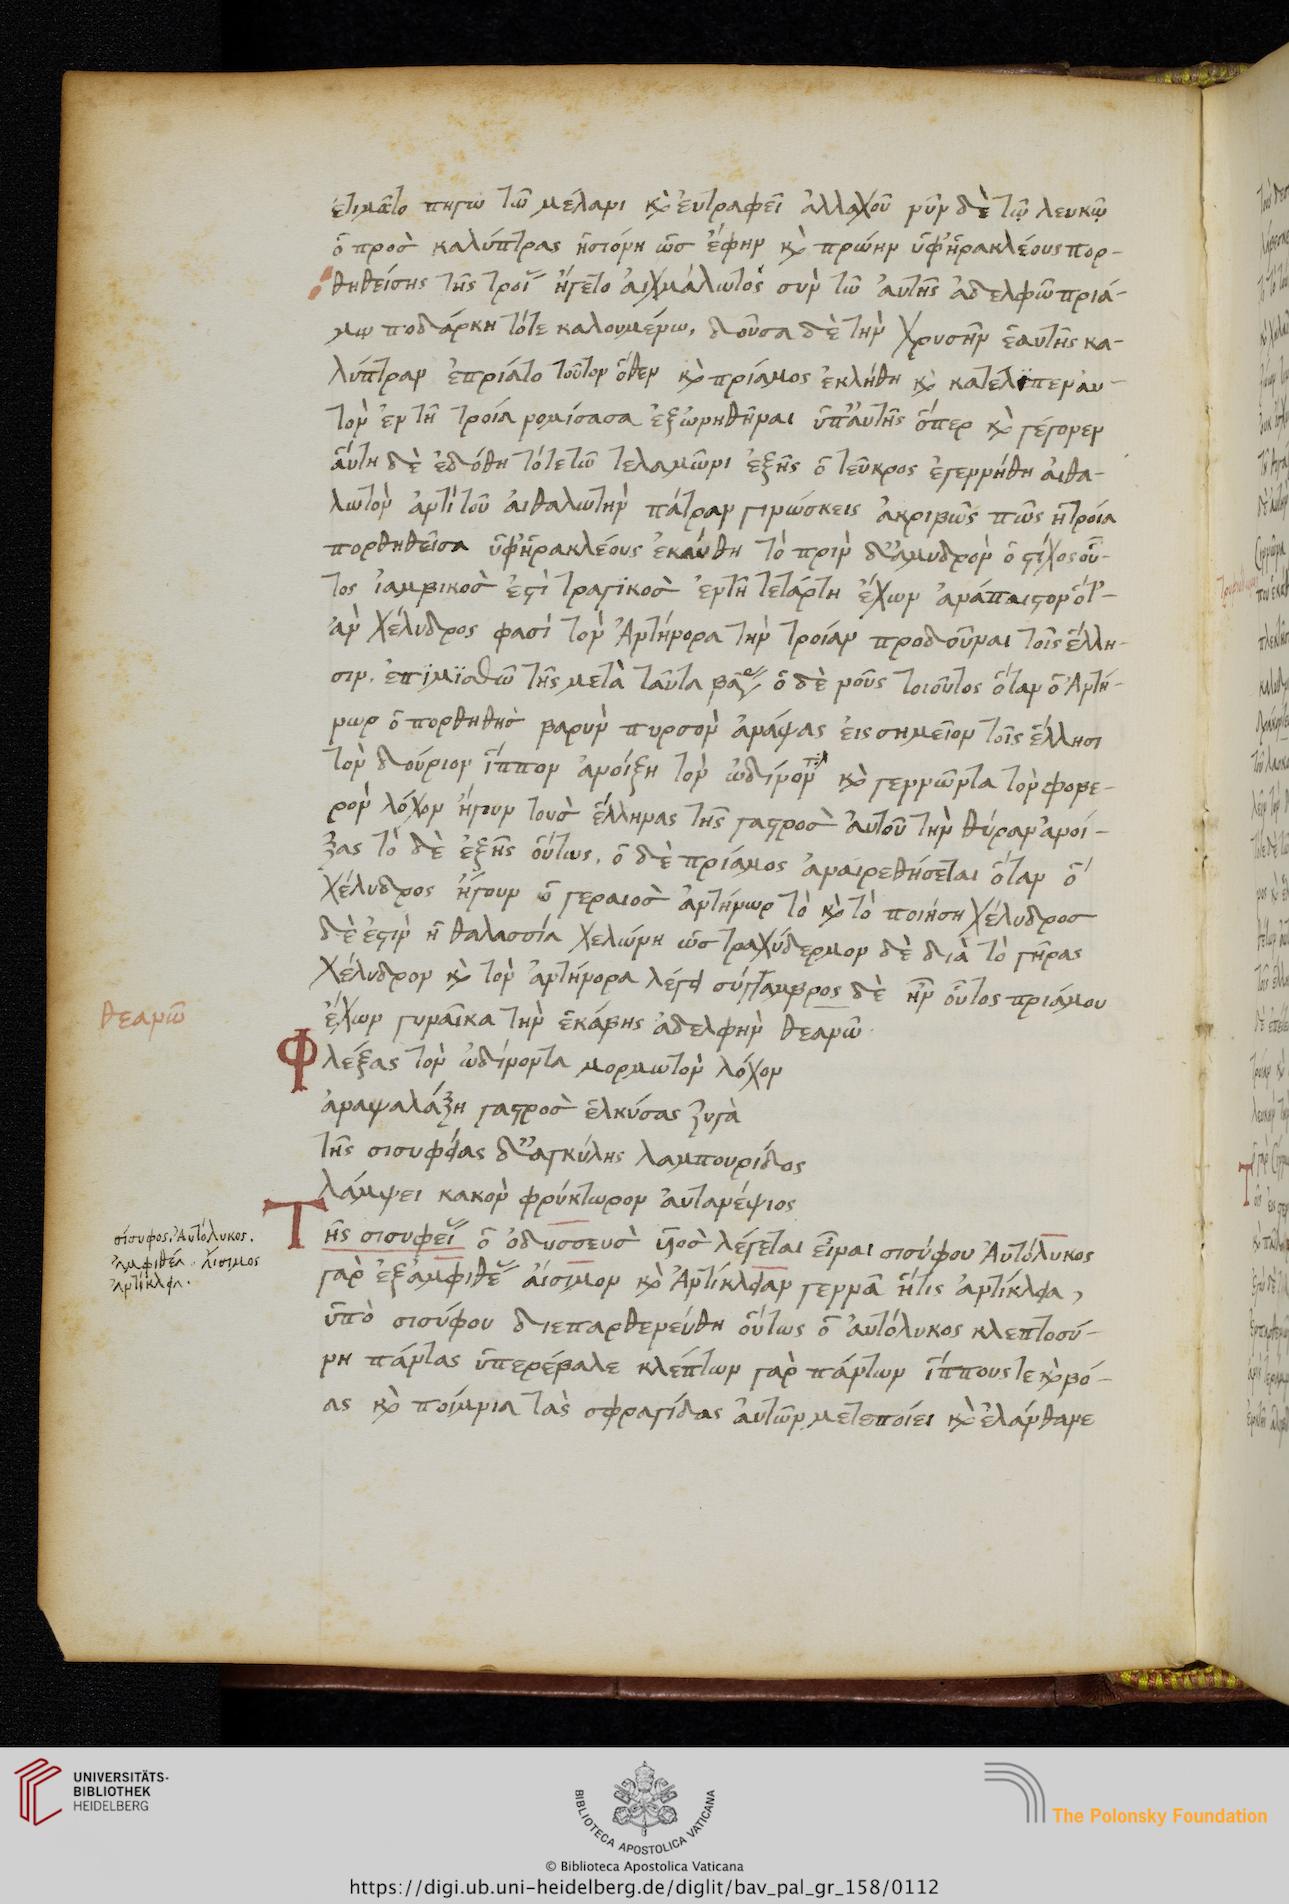 ἐτιμᾶτο πηγῶ τῶ μέλανι κὶ ἐυτραφεῖ ἀλλαχοῦ νῦν δὲ τῷ λευκῷ
ὃ προσ καλύπτρας ἡστόνη ὡσ ἔφην κὶ πρώην ὑφ' ἡρακλέους πορ-
θηθείσης τῆς τροί ἤγετο ἀιχμάλωτος σὺν τῶ ἀυτῆς ἀδελφῶ πριά-
μω ποδάρκη τότε καλουμένω, δοῦσα δὲ τὴν χρυσῆν ἑαυτῆς κα-
λύπτραν ἐπριάτο τοῦτον ὅθεν κὶ πριάμος ἐκλήθη κὶ κατελίπεν ἀυ-
τὸν ἐν τῆ τροία νομίσασα ἐξωνηθῆναι ὑπ' ἀυτῆς ὅπερ κὶ γέγονεν
ἅυτη δὲ ἐδόθη τότε τῶ τελαμῶνι ἐξῆς ὁ τεῦκρος ἐγεννήθη ἀιθα-
λωτὸν ἀντὶ τοῦ ἀιθαλωτὴν πάτραν γινώσκεις ἀκριβῶς πῶς ἡ τροία
πορθηθεῖσα ὑφ' ἡρακλέους ἐκαύθη τὸ πρὶν δ' ἀμυδρὸν ὁ στίχος οὗ-
τος ἰαμβικὸσ ἐστὶ τραγικὸσ ἐν τῆ τετάρτη ἔχων ἀνάπαιστον ὅτ'-
ἀν χέλυδρος φασὶ τὸν Ἀντήνορα τὴν τροίαν προδοῦναι τοῖς ἕλλη-
σιν. ἐπὶ μισθῶ τῆς μετὰ ταῦτα ὁ δὲ νοῦς τοιοῦτος ὅταν ὁ Ἀντή-
νωρ ὁ πορθηθὴσ βαρυν πυρσὸν ἀνάψας ἐις σημεῖον τοῖς ἕλλησι
τὸν δούριον ἵππον ἀνοίξη τὸν ὠδίνοντα κὶ γεννῶντα τὸν φοβε-
ρὸν λόχον ἤγουν τοὺσ ἕλληνας τῆς γαστροσ ἀυτοῦ τὴν θύραν ἀνοί-
ξας τὸ δὲ ἐξῆς οὕτως. ὁ δὲ πριάμος ἀναιρεθήσεται ὅταν ὁ
χέλυδρος ἤγουν ὁ γεραιοσ ἀντήνωρ τὸ κὶ τὸ ποιήση χέλυδροσ
δὲ ἐστὶν ἡ θαλασσία χελώνη ὡσ τραχύδερμον δὲ διὰ τὸ γῆρας
χέλυδρον κὶ τὸν ἀντήνορα λέγει σύγγαμβρος δὲ ἦν οὗτος πριάμου
ἔχων γυναῖκα τὴν ἑκάβης ἀδελφὴν θεανῶ
θεανῶ
Φλέξας τὸν ὠδίνοντα μορμωτὸν λόχον
ἀναψαλάξη γαστροσ ἑλκύσας ζυγὰ
τῆς σισυφείας δ' ἀγκύλης λαμπουρίδος
λάμψει κακὸν φρύκτωρον ἀυτανέψιος
Τῆς σισυφεί ὁ ὀδυσσευσ ὑιοσ λέγεται εἶναι σισύφου Ἀυτόλυκος
σίσυφος. Ἀυτόλυκος.
ἀμφιθέα. ἄισιμος
ἀντίκλεια.
γὰρ ἐξ ἀμφιθέ ἀίσιμον κὶ Ἀντίκλειαν γεννᾶ ἥτις ἀντίκλεια,
ὑπὸ σισύφου διεπαρθενεύθη οὕτως ὁ ἀυτόλυκος κλεπτοσύ-
νη πάντας ὑπερέβαλε κλέπτων γαρ πάντων ἵππους τε κὶ βό-
ας κὶ ποίμνια τὰς σφραγίδας ἀυτῶν μετεποίει κὶ ἐλάνθανε
UNIVERSITÄTS-
BIBLIOTHEK
HEIDELBERG
BIBLIOTECA APOSTOLICA VATICANA
The Polonsky Foundation
© Biblioteca Apostolica Vaticana
https://digi.ub.uni-heidelberg.de/diglit/bav_pal_gr_158/0112